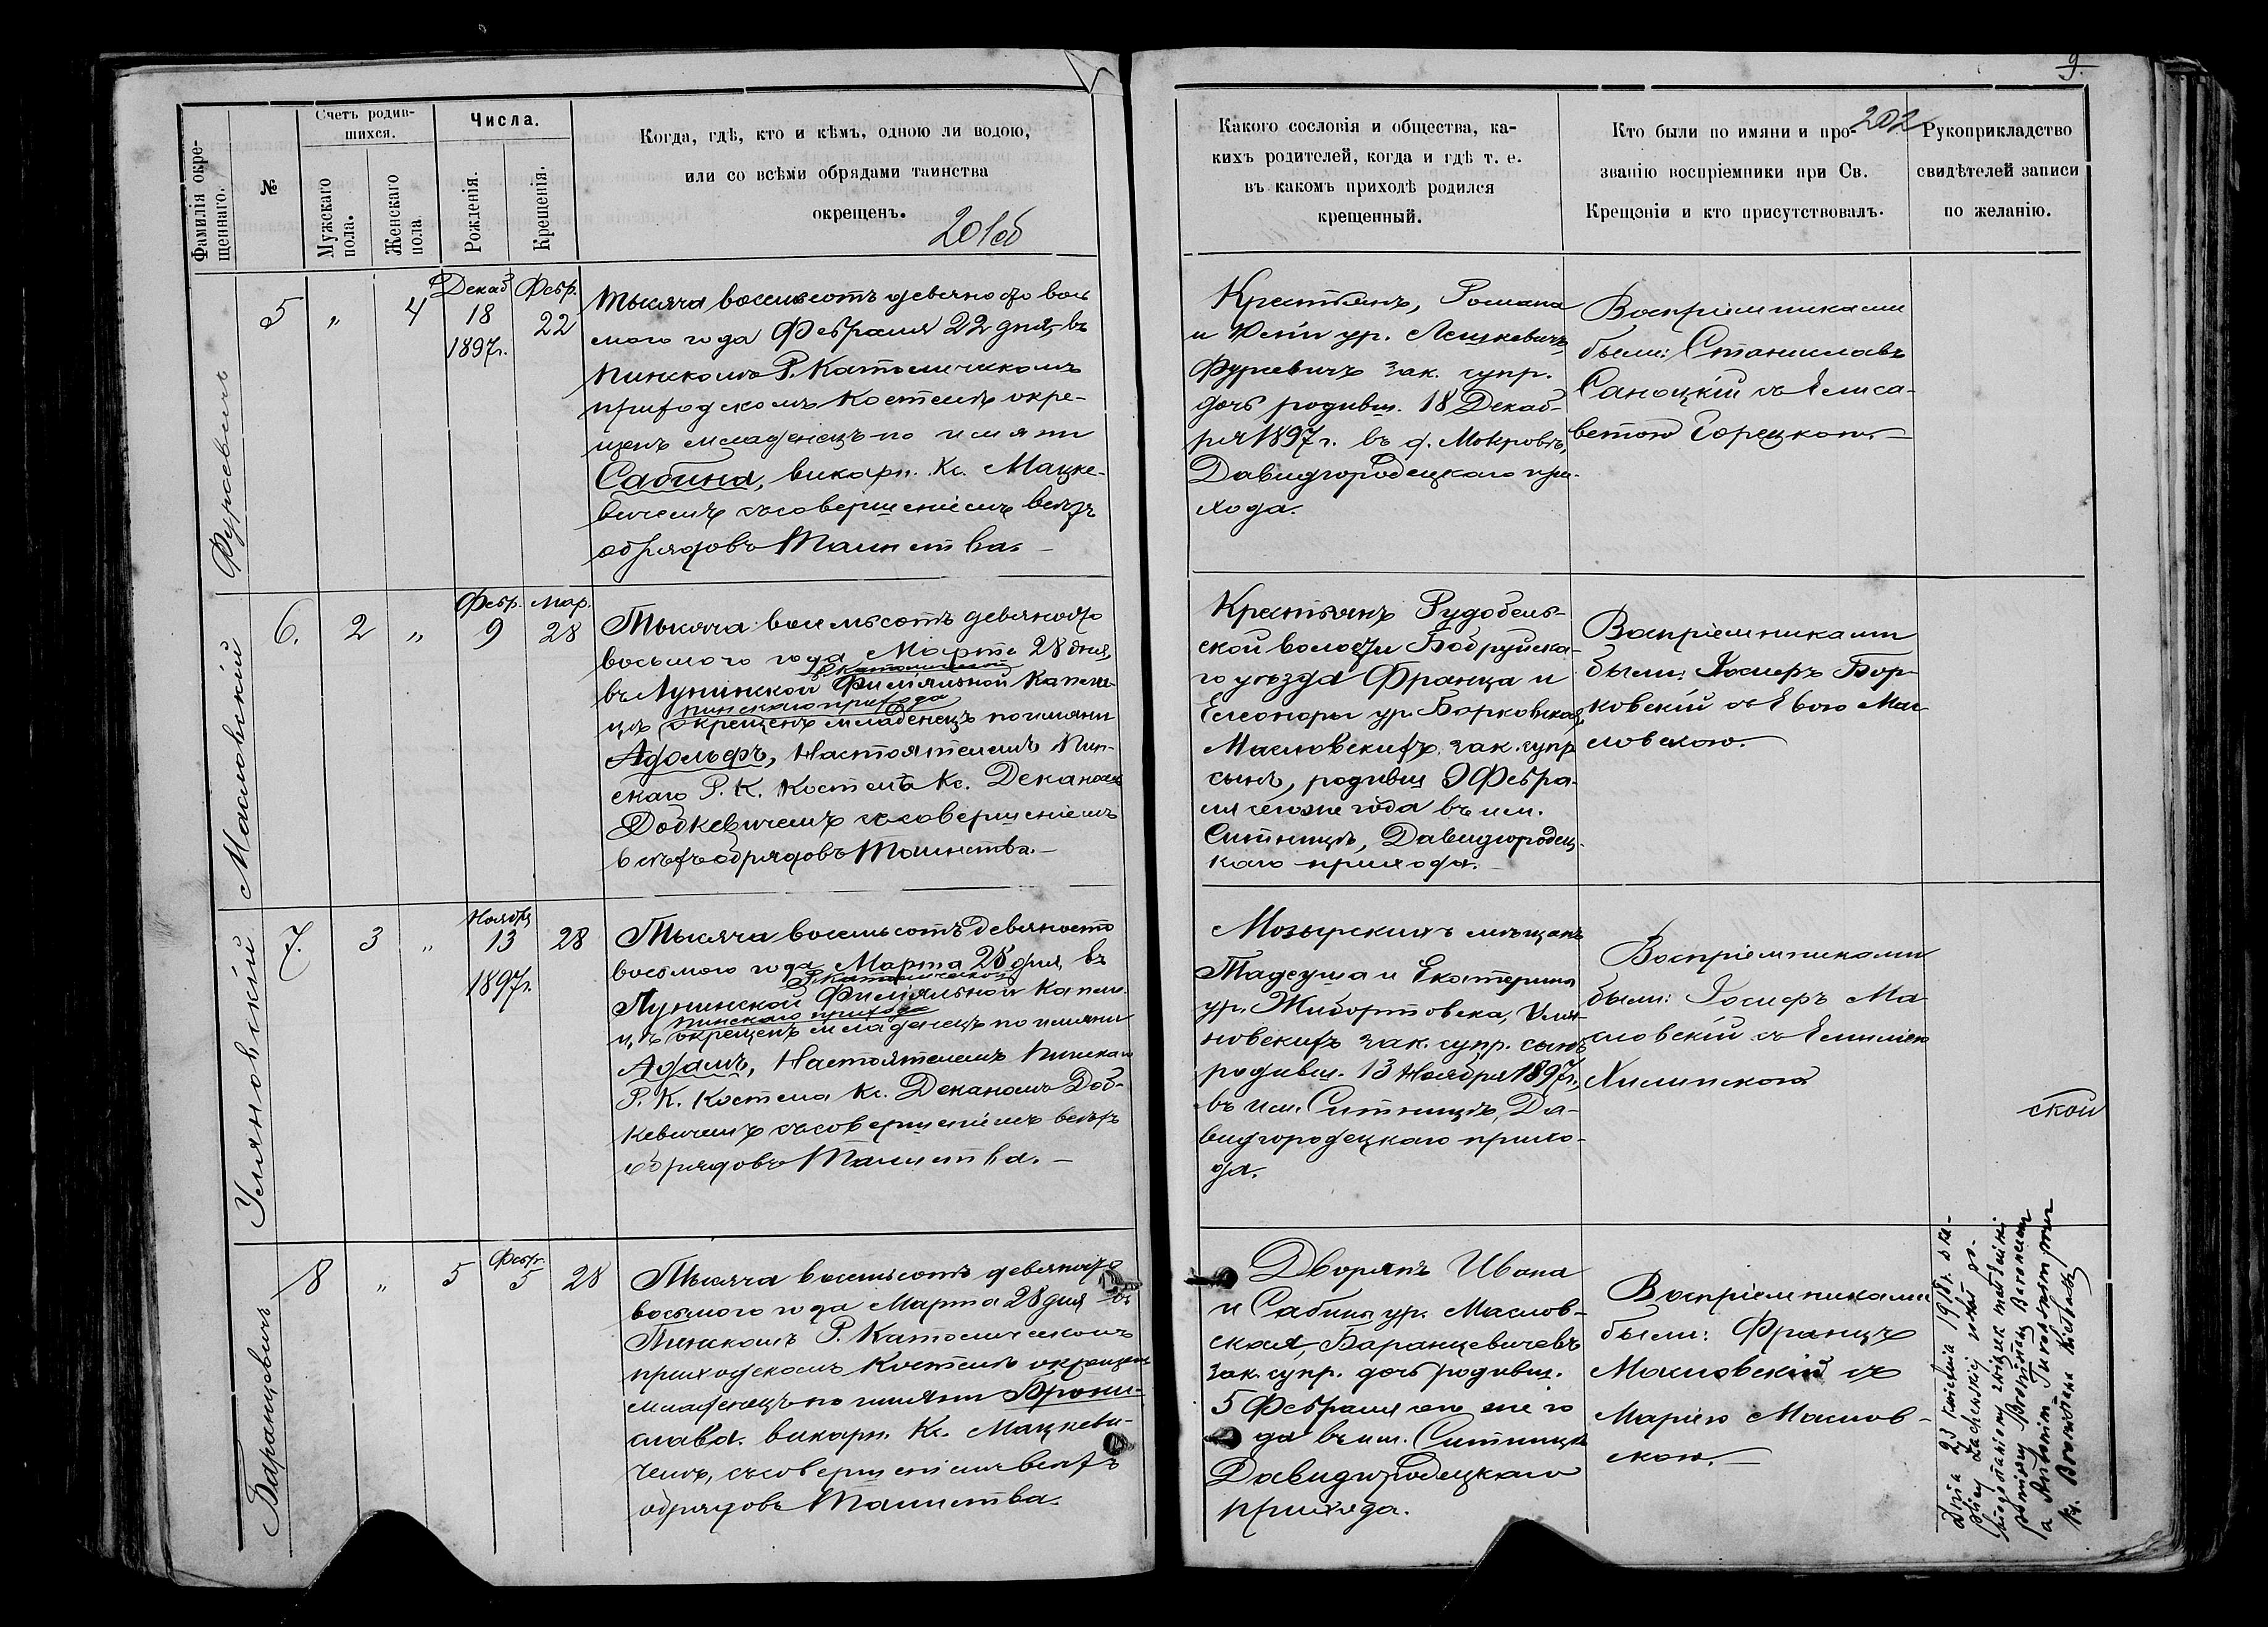 9.
202
201об
Фамилія окре-
щеннаго.
№
Счетъ родив-
шихся.
Мужскаго
пола.
Женскаго
пола
Числа.
Рожденія.
Крещенія.
Когда, гдѣ, кто и кѣмъ, одною ли водою,
или со всѣми обрядами таинства
окрещенъ.
Какого сословія и общества, ка-
кихъ родителей, когда и гдѣ т. е.
въ какомъ приходѣ родился
крещенный.
Кто были по имяни и про-
званію воспріемники при Св.
Крещэніи и кто присутствовалъ.
Рукоприкладство
свидѣтелей записи
по желанію.
Фурсевичъ
5 " 4
Декаб
18
1897г.
Февр.
22
Тысяча восемьсотъ девяносто вось
мого года Февраля 22 дня, въ
Пинскомъ Р. Католическомъ
приходскомъ Костелѣ окре-
щенъ младенецъ по имяни
Сабина, викарн. Кс. Мацке-
вичемъ съ совершеніемъ всѣхъ
обрядовъ Таинства. –
Крестьянъ, Романа
и Фели ур. Лешкевичъ
Фурсевичъ зак. супр.
дочь родивш. 18 Декаб-
ря 1897 г. въ д. Мокровѣ,
Давидгородецкаго при-
хода.
Воспріемниками
были: Станиславъ
Саноцкій съ Елиса-
ветою Горецкою. –
Масловскій
6. 2 "
Февр.
9
Мар.
28
Тысяча восемьсотъ девяносто
восьмого года Марта 28 дня,
Р. Католической
въ Лунинской Филіяльной Капли-
Пинскаго прихода
цѣ окрещенъ младенецъ по имяни
Адольфъ, Настоятелемъ Пин-
скаго Р. К. Костела Кс. Деканомъ
Добкевичемъ съ совершеніемъ
всѣхъ обрядовъ Таинства. –
Крестьянъ Рудобель-
ской волости Бобруйска-
го уѣзда Франца и
Елеоноры ур. Борковская,
Масловскихъ зак. супр
сынъ, родивш 9 Февра-
ля сего же года въ им.
Ситницѣ, Давидгородец-
каго прихода. –
Воспріемниками
были: Іосифъ Бор-
ковскій съ Евою Мас
ловскою. –
Уляновскій
7. 3 "
Ноября
13
1897г.
28
Тысяча восемьсотъ девяносто
восьмого года Марта 28 дня, въ
Р. Католической
Лунинской Филіяльной Капли-
Пинскаго прихода
цѣ окрещенъ младенецъ по имяни
Адамъ, Настоятелемъ Пинскаго
Р. К. Костела Кс. Деканомъ Доб-
кевичемъ съ совершеніемъ всѣхъ
обрядовъ Таинства. –
Мозырскихъ мѣщанъ
Тадеуша и Екатерины
ур. Жибортовска, Уля-
новскихъ зак. супр. сынъ
родивш. 13 Ноября 1897г.,
въ им. Ситницѣ, Да-
видгородецкаго прихо-
да.
Воспріемниками
были: Іосифъ Ма
словскій съ Емиліею
Хилинскою
ской
Баранцевичъ
8 " 5
Февр.
5
28
Тысяча восемьсотъ девяносто
восьмого года Марта 28 дня въ
Пинскомъ Р. Католическомъ
приходскомъ Костелѣ окрещенъ
младенецъ по имяни Брони-
слава. викарн. Кс. Мацкеви-
чемъ, съ совершеніемъ всѣхъ
обрядовъ Таинства.
Дворянъ Ивана
и Сабины ур. Маслов-
ская, Баранцевичевъ
зак. супр. дочь родивш.
5 Февраля сего же го
да въ им. Ситницѣ
Давидгородецкаго
прихода.
Воспріемниками
были: Францъ
Масловскій съ
Маріею Маслов-
скою. –
Dnia 23 kwietnia 1918 r. w ka-
plicy Lachewskiej został po-
błogosławiony związek małżeński
pomiędzy Bronisławą Baroncewicz
a Antonim